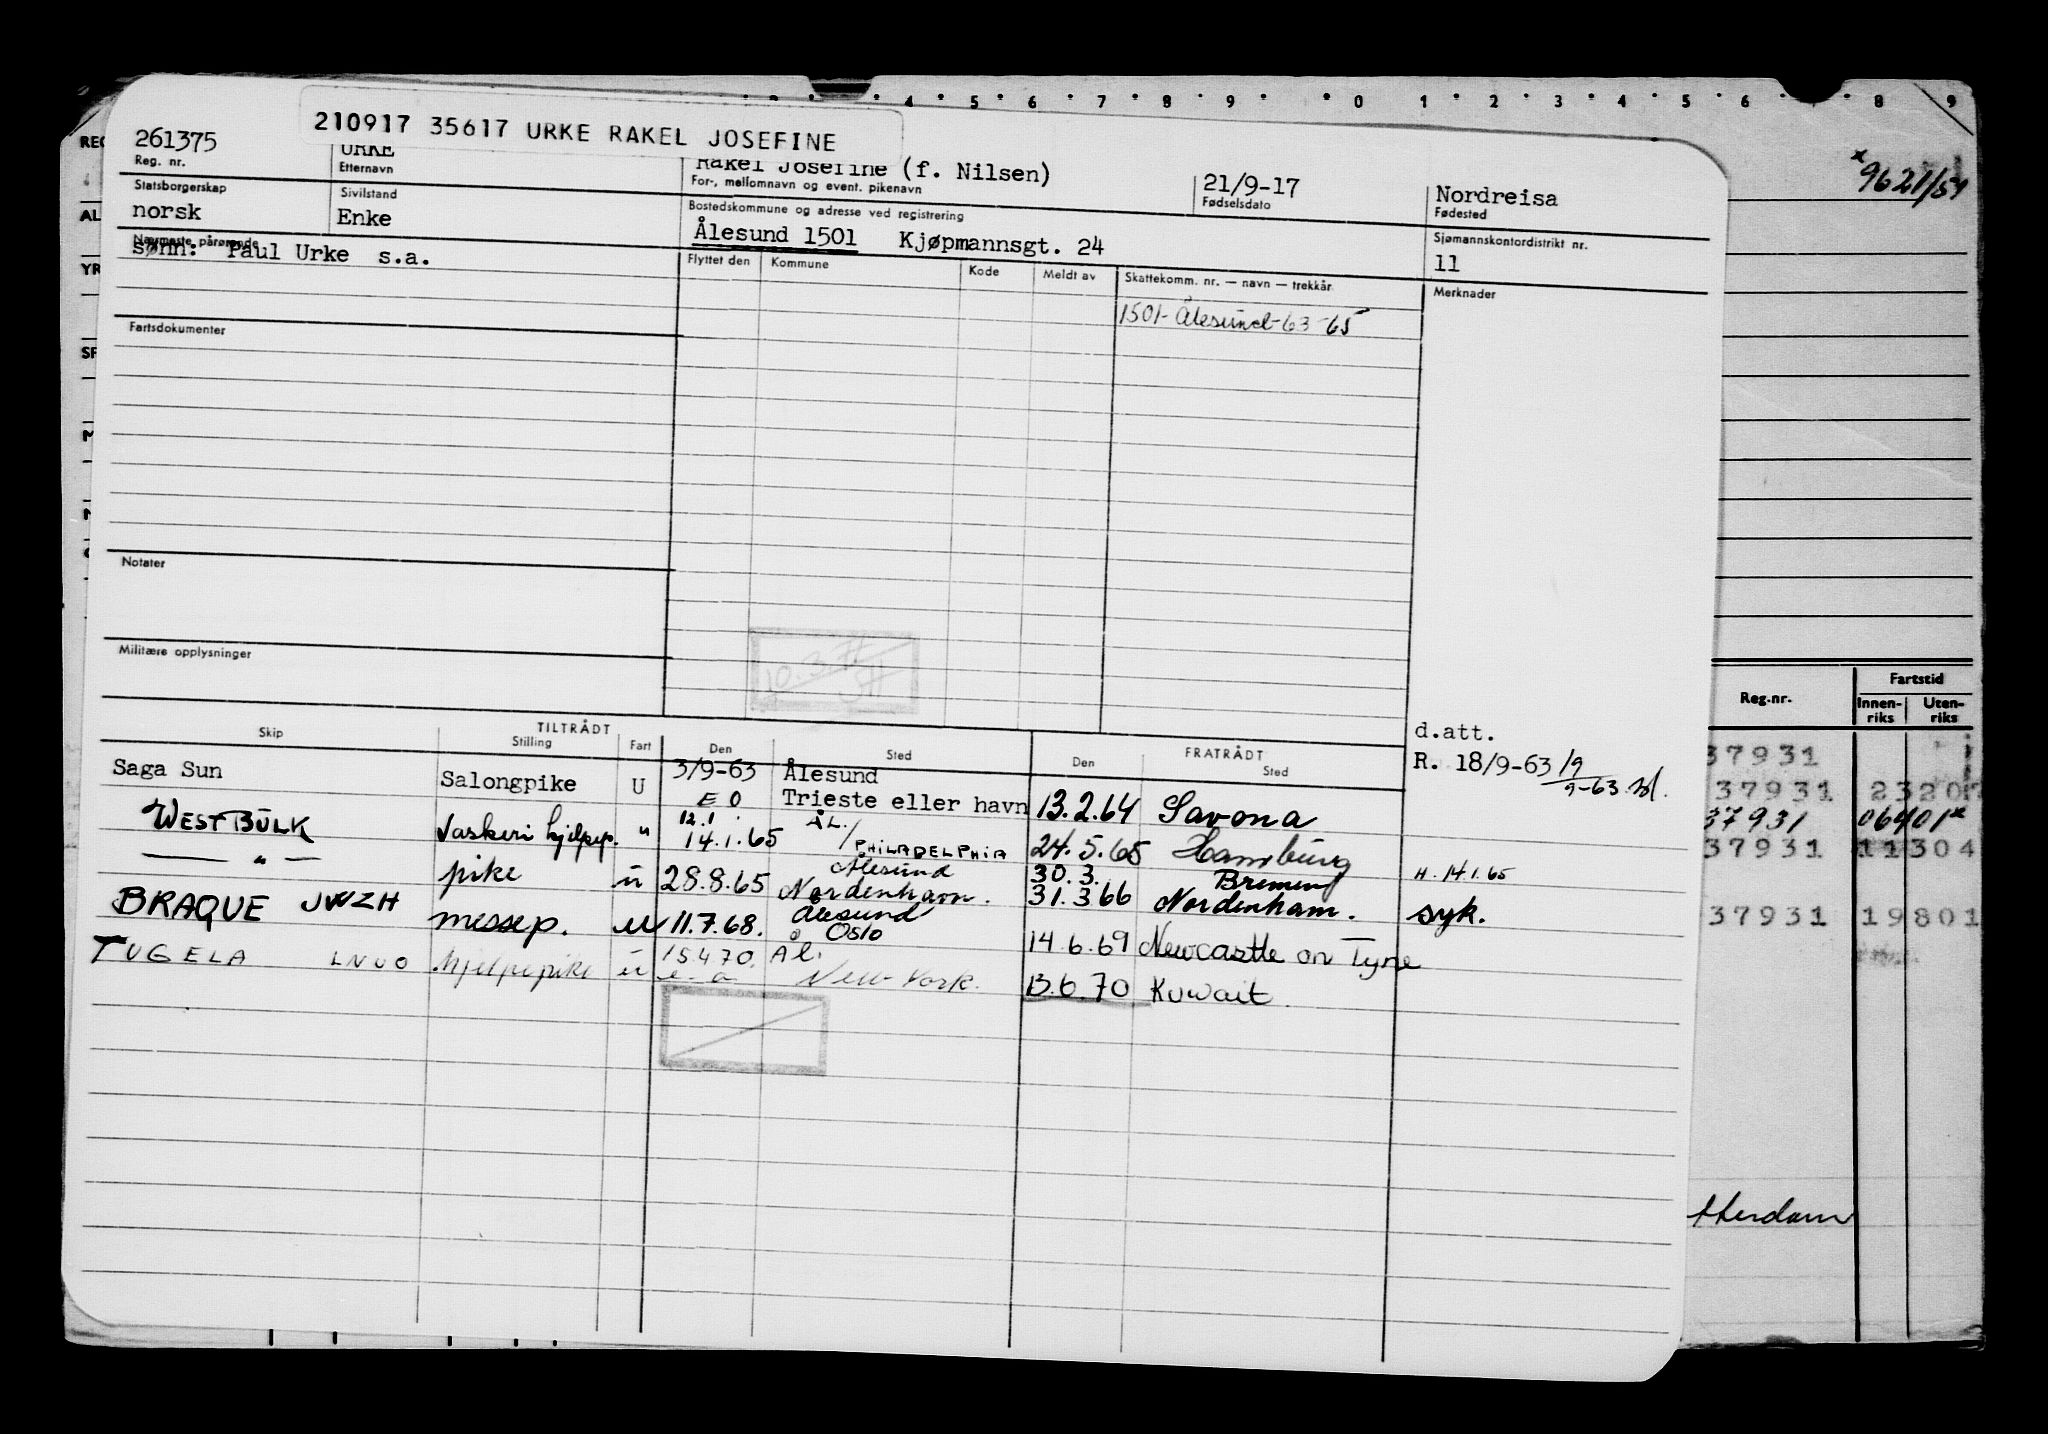 4 5 6 7 8 9 0 1 2 3 4 5 6 8 9
210917 35617 URKE RAKEL JOSEFINE
261375 URKE Rakel Josefine (f. Nilsen) 21/9-17 Nordreisa
Reg. nr. Etternavn For-, mellomnavn og event. pikenavn Fødselsdato Fødested
x9621/51
Statsborgerskap Sivilstand Bostedskommune og adresse ved registrering Sjømannskontordistrikt nr.
norsk Enke Ålesund 1501 Kjøpmannsgt. 24 11
Nærmeste pårørende Flyttet den Kommune Kode Meldt av Skattekomm. nr. — navn — trekkår Merknader
sønn: Paul Urke s.a.
1501-Ålesund-63-65
Fartsdokumenter
Notater
Militære opplysninger
10.3.71
TILTRÅDT FRATRÅDT
Skip Stilling Fart Den Sted Den Sted
d.att.
Saga Sun Salongpike U 3/9-63 Ålesund R. 18/9-63 19/9-63
E O Trieste eller havn 13.2.64 Savona
WESTBULK Vaskeri hjelpep. u 12.1 ÅL./
14.1.65 PHILADELPHIA 24.5.65 Hamburg H. 14.1.65
— " — pike u 28.8.65 Ålesund Nordenham. 30.3. 31.3.66 Bremen Nordenham. syk.
BRAQUE JWZH messep. u 11.7.68. Ålesund Oslo 14.6.69 Newcastle on Tyne
TUGELA LNUO hjelpepike u 15.4.70. Ål.
e.o New York. 13.6.70 Kuwait.
Reg.nr. Fartstid
Innen-riks Uten-riks
37931
37931 23207
37931 06401x
37931 11304
37931 19801
tterdam